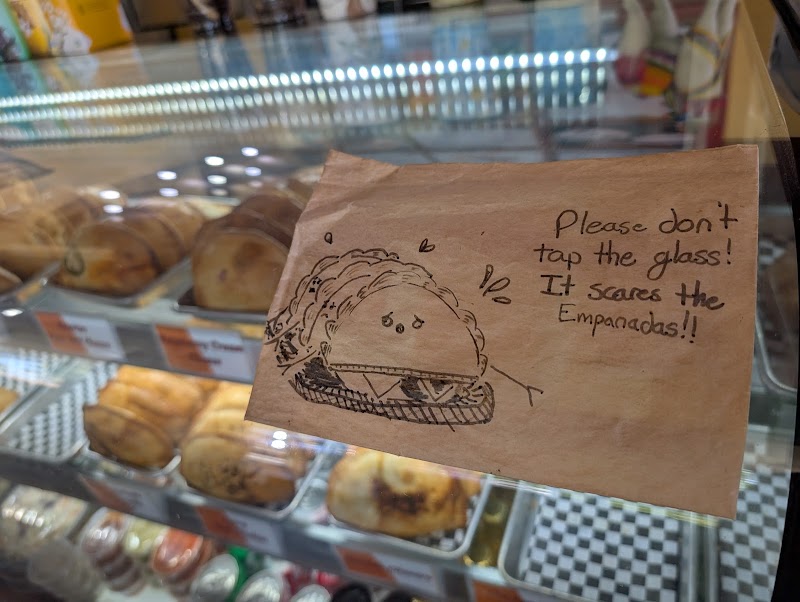 Please don't
tap the glass!
It scares the
Empanadas!!